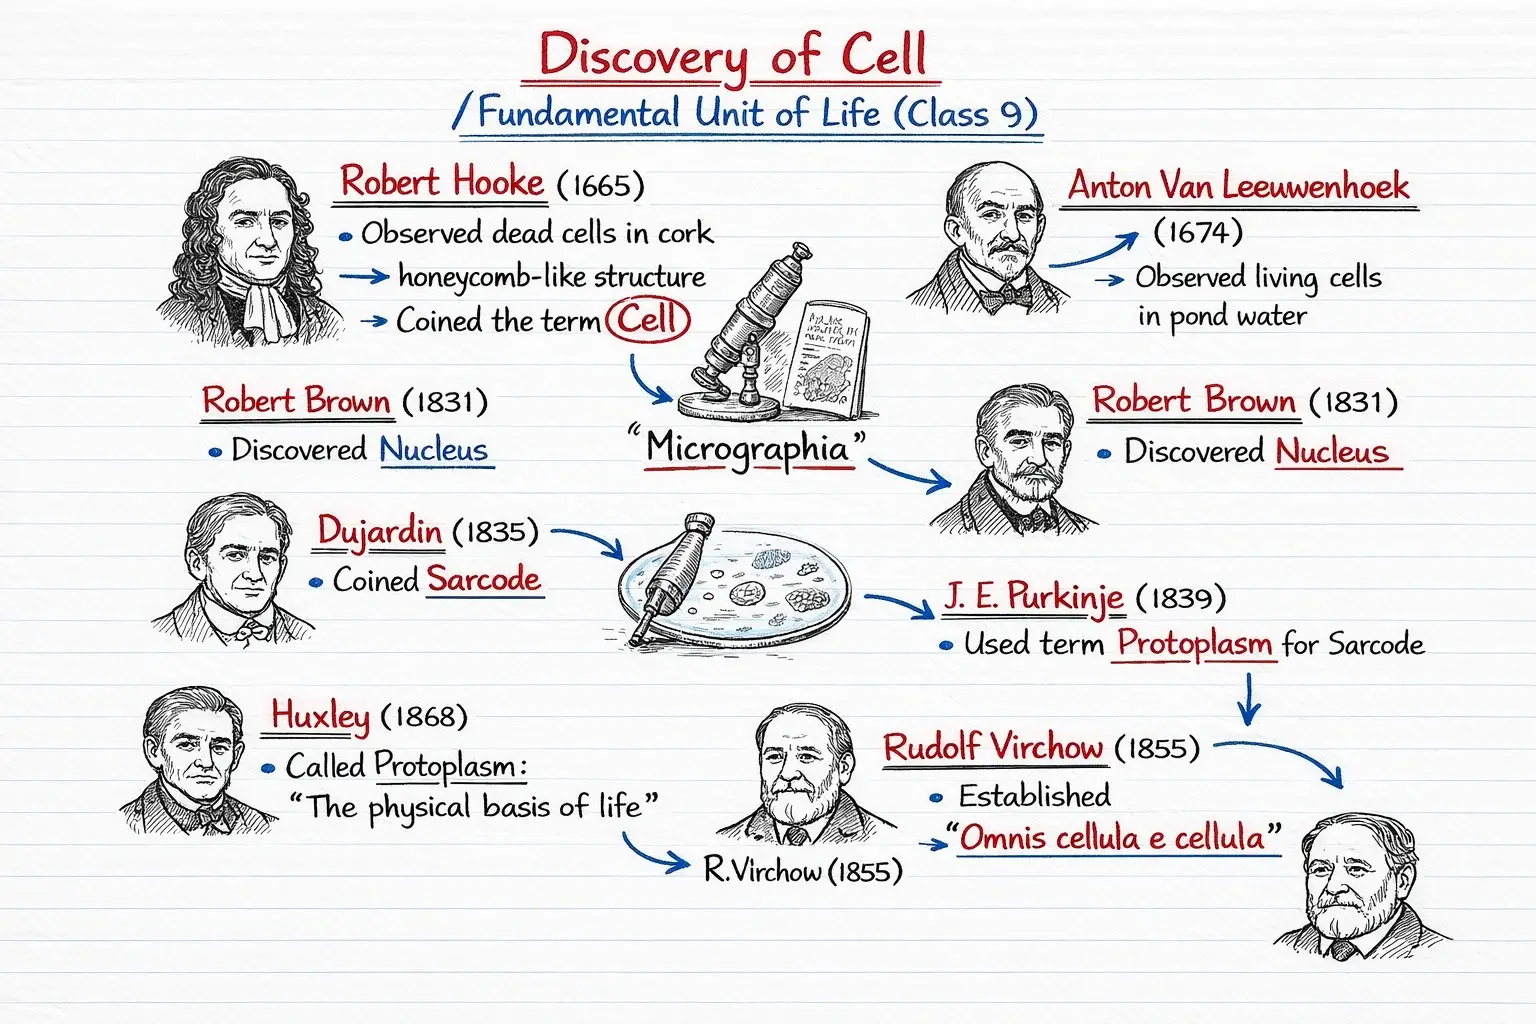 Discovery of Cell
/Fundamental Unit of Life (Class 9)
Robert Hooke (1665)
• Observed dead cells in cork
→ honeycomb-like structure
→ Coined the term Cell
"Micrographia"
Anton Van Leeuwenhoek
(1674)
→ Observed living cells
in pond water
Robert Brown (1831)
• Discovered Nucleus
Robert Brown (1831)
• Discovered Nucleus
Dujardin (1835)
• Coined Sarcode
J. E. Purkinje (1839)
• Used term Protoplasm for Sarcode
Huxley (1868)
• Called Protoplasm:
"The physical basis of life"
R.Virchow (1855)
Rudolf Virchow (1855)
• Established
→ "Omnis cellula e cellula"